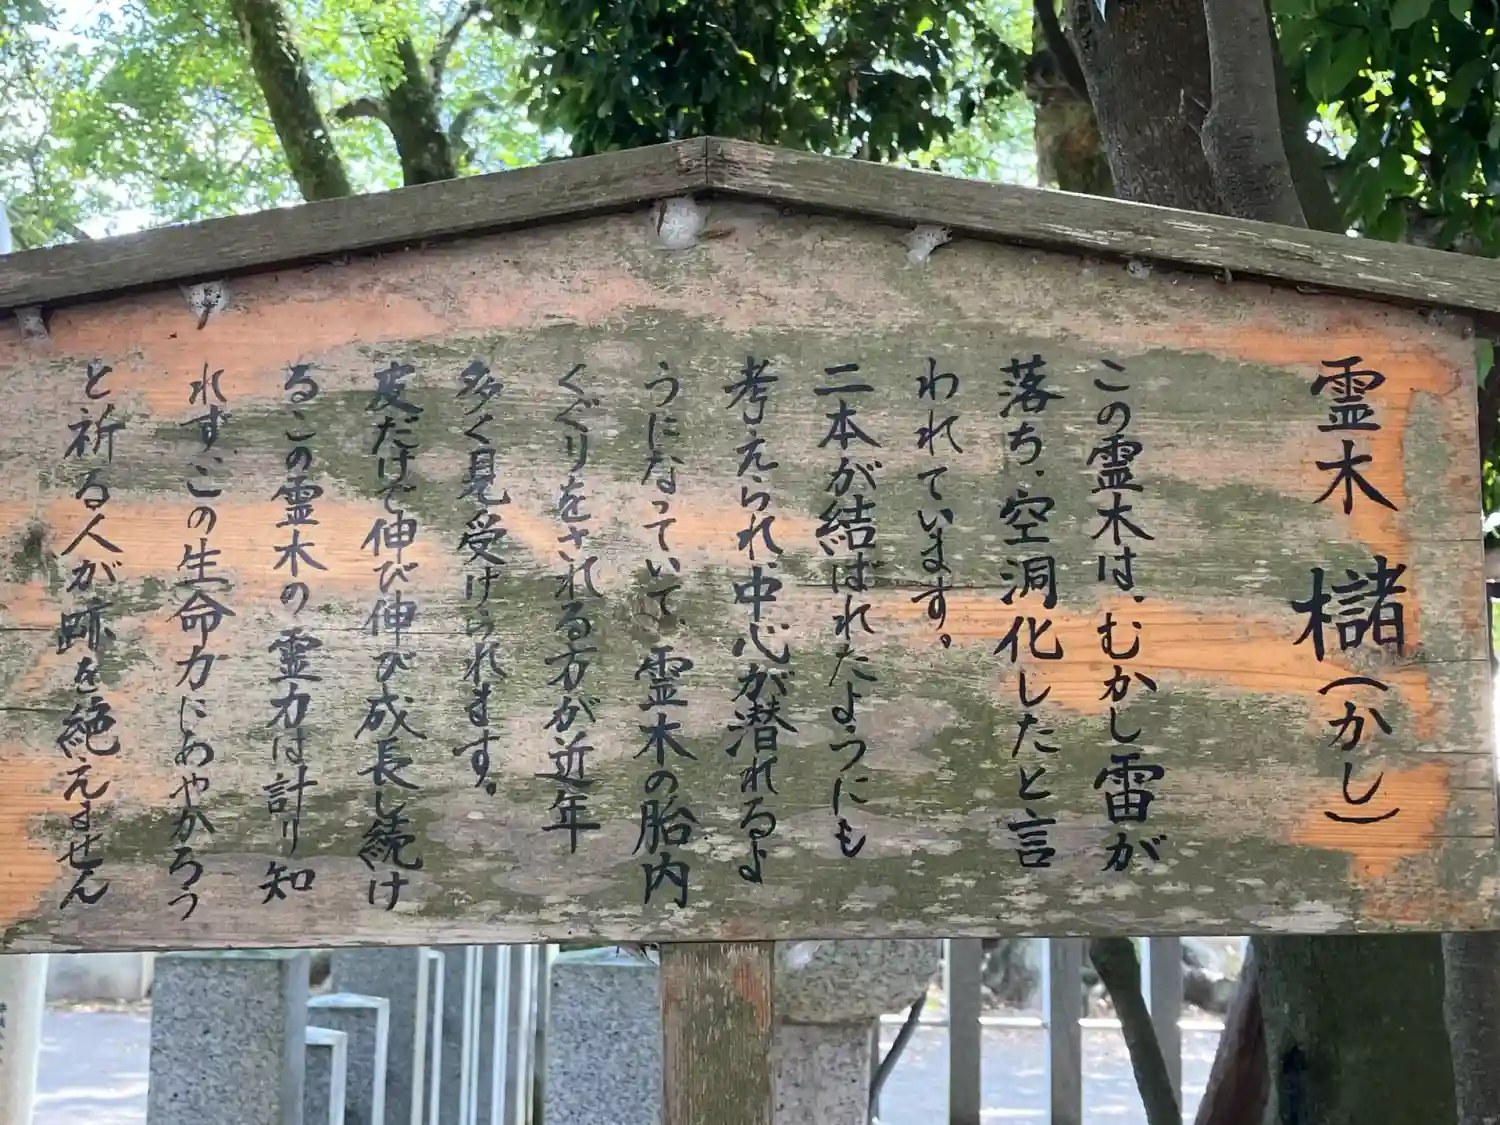 霊木 櫧(かし)
この霊木は、むかし雷が
落ち、空洞化したと言
われています。
二本が結ばれたようにも
考えられ、中心が潜れるよ
うになっていて、霊木の胎内
くぐりをされる方が近年
多く見受けられます。
皮だけで伸び伸び成長し続け
るこの霊木の霊力は計り知
れず、この生命力にあやかろう
と祈る人が跡を絶えません